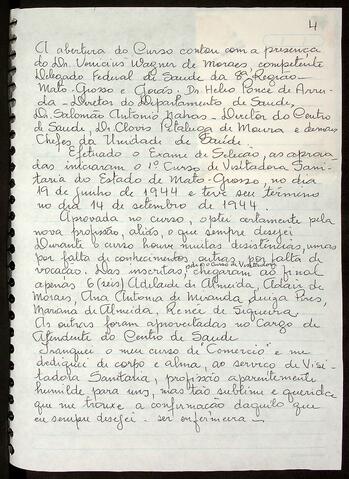 4
A abertura do Curso contou com a presença
do Dr. Vinicius Wagner de Moraes, competente
Delegado Federal de Saude da 8ª Região
Mato-Grosso e Goiás. Dr. Helio Ponce de Arru-
da - Diretor do Departamento de Saude,
Dr. Salomão Antonio Nahas - Diretor do Centro
de Saude, Dr. Clovis Pitaluga de Moura e demais
Chefes da Unidade de Saude.
Efetuado o Exame de Seleção, as aprova
das iniciaram o 1º Curso de Visitadora Sani-
taria do Estado de Mato-Grosso, no dia
19 de junho de 1944 e teve seu termino
no dia 14 de setembro de 1944.
Aprovada no curso, optei certamente pela
nova profissão, aliás, o que sempre desejei
Durante o curso houve muitas desistências, umas
por falta de conhecimentos outras por falta de
vocação. Das inscritas, chegaram ao final
apenas 6 (seis) Adelaide de Almeida, Adair de
Moraes, Ana Antonia de Miranda, Luiza Pires,
Mariana de Almeida, Renée de Siqueira
As outras foram aproveitadas no Cargo de
Atendente do Centro de Saude
Tranquei o meu curso de "Comercio" e me
dediquei de corpo e alma, ao serviço de Visi-
tadora Sanitaria, profissão aparentemente
humilde para uns, mas tão sublime e querida
que me trouxe a confirmação daquilo que
eu sempre desejei - ser enfermeira -